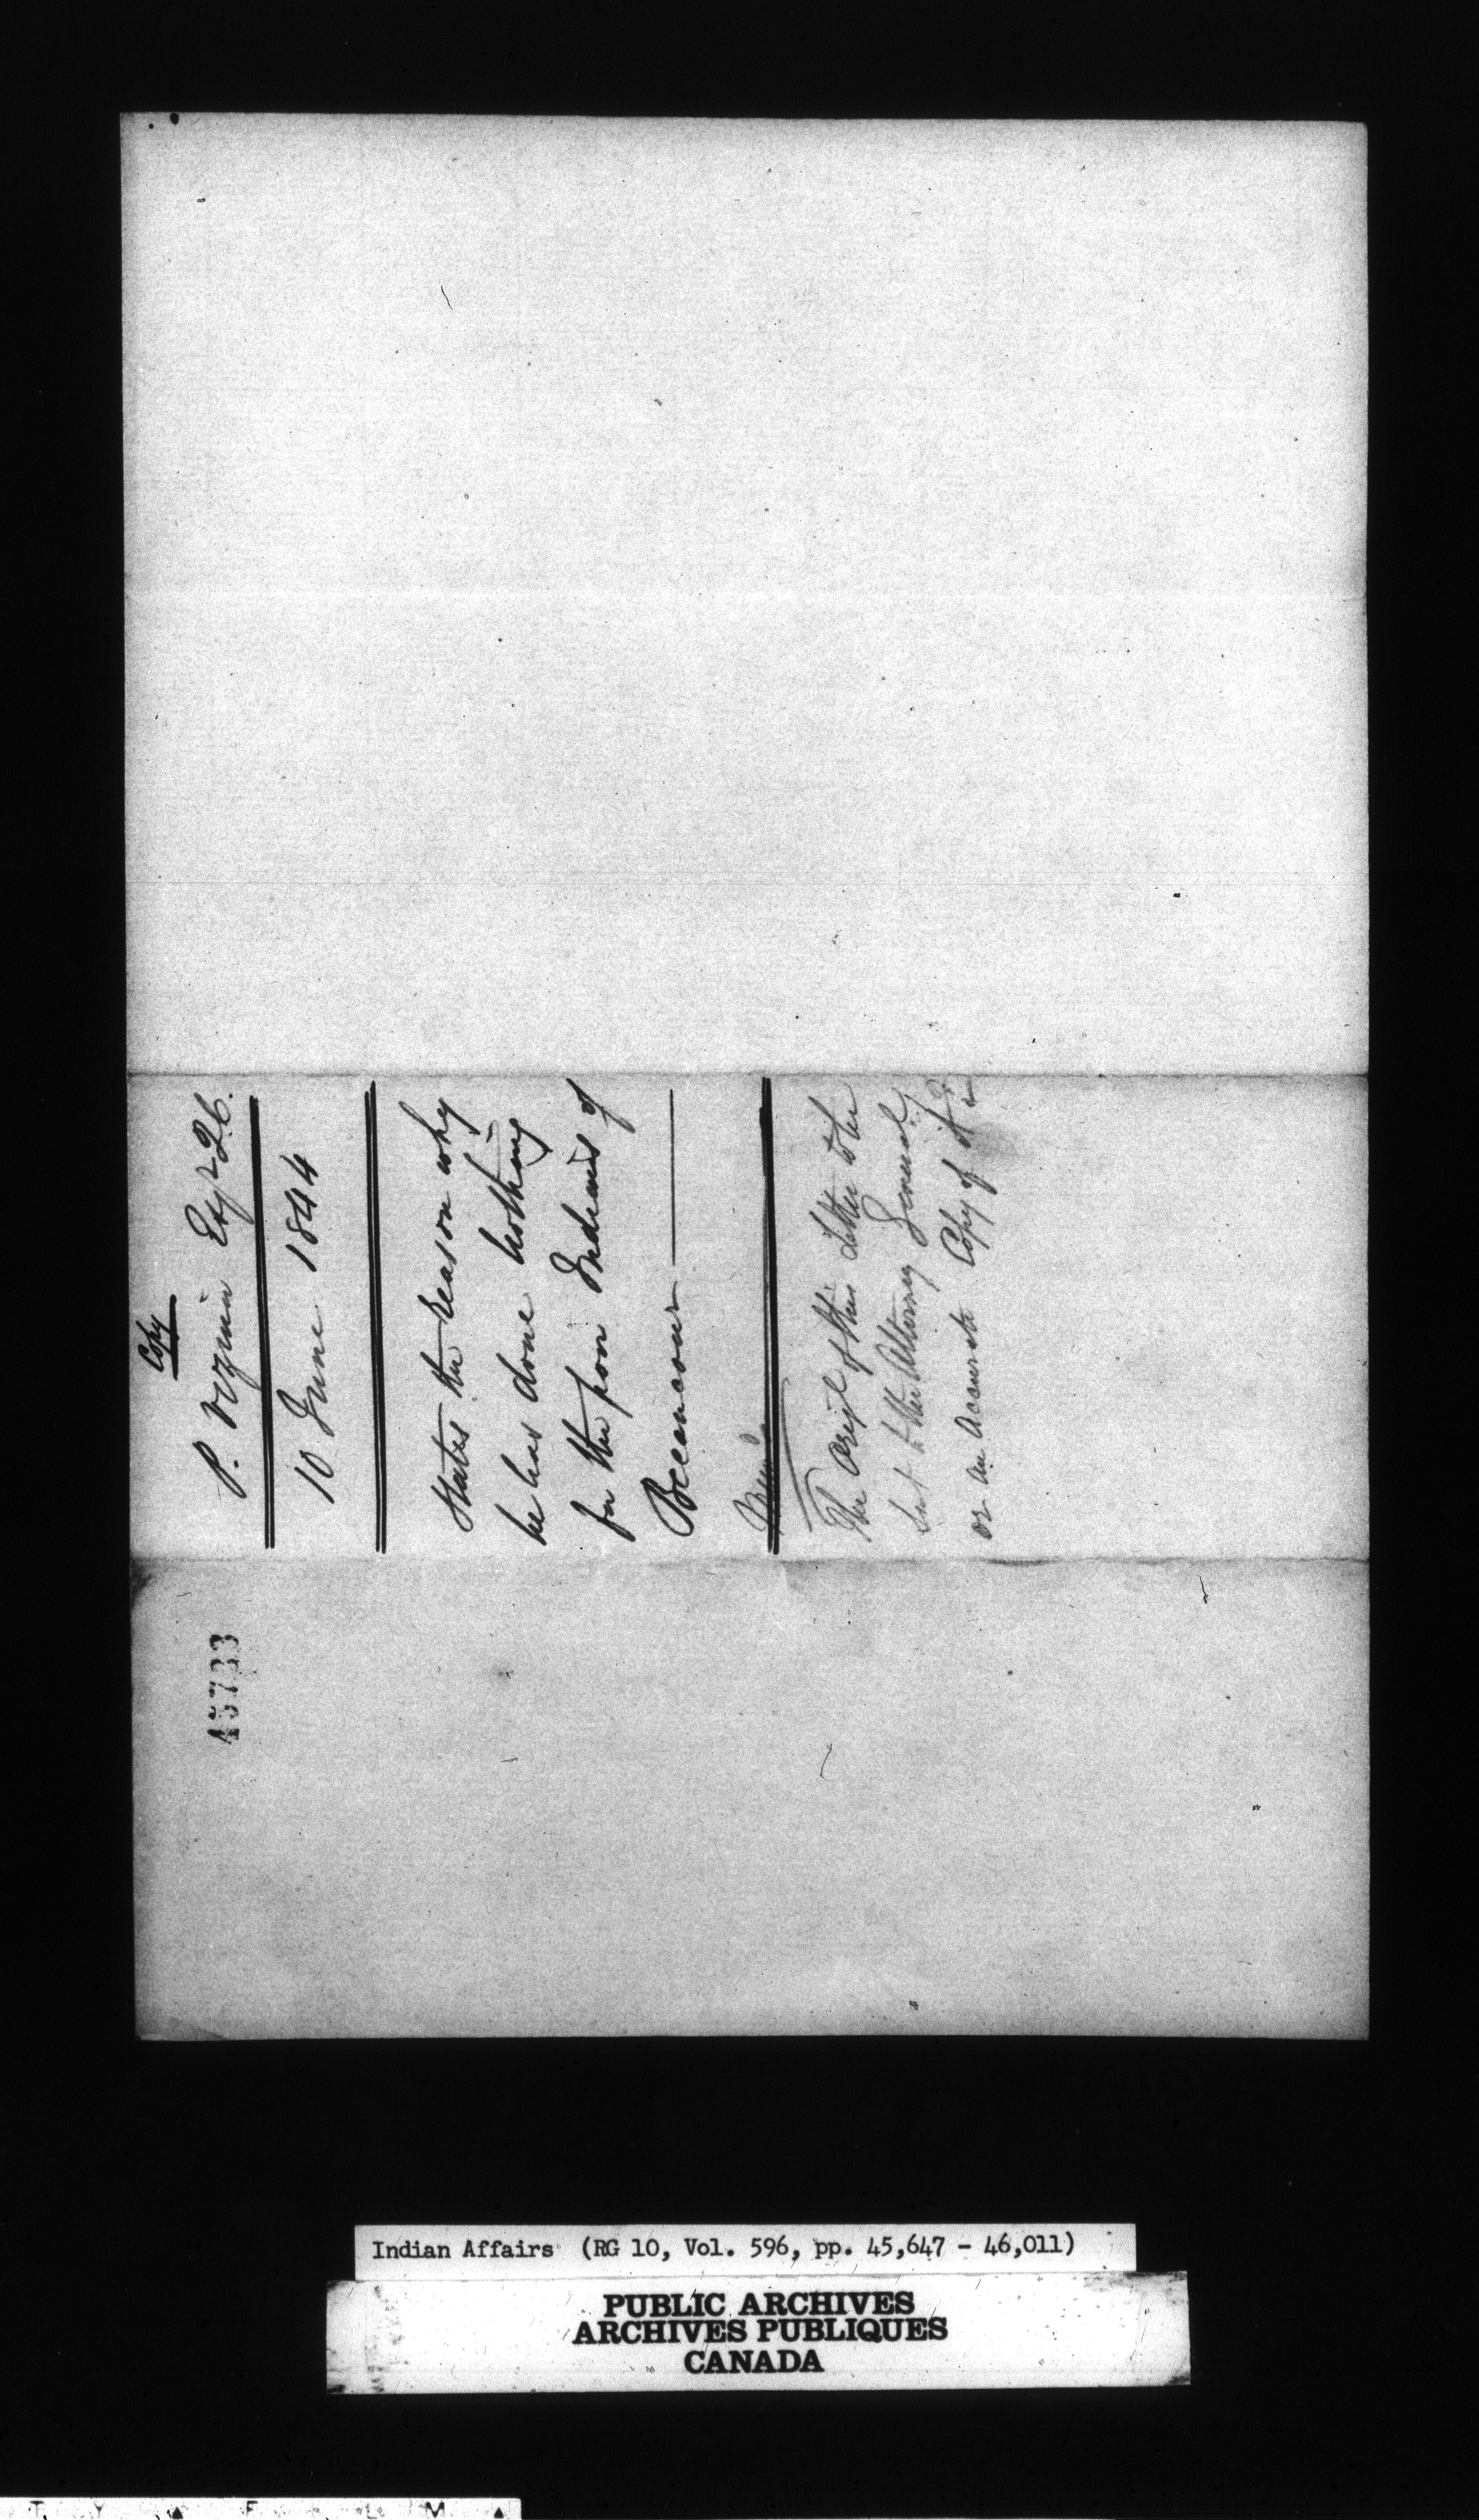 Copy
P. Vezina Esqr
10 June 1844
States the reason why
he has done nothing
for the poor Indians of
Becancour
The Origl of this Letter to be
Sent to the Attorney General,
or an Accurate Copy of it
45733
Indian Affairs (RG 10, Vol. 596, pp. 45,647 - 46,011)
PUBLIC ARCHIVES
ARCHIVES PUBLIQUES
CANADA